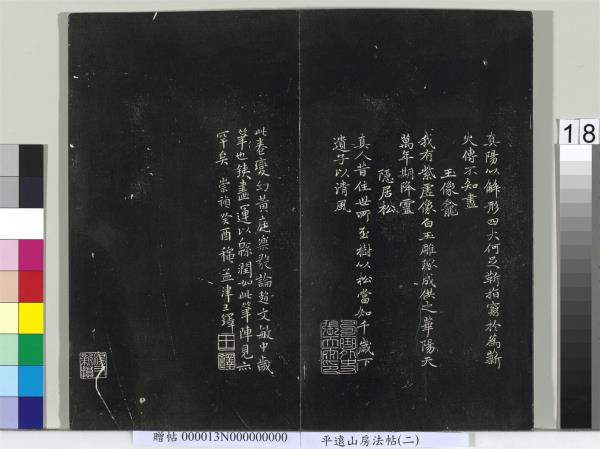 真陽以解形四大何足靳指窮於為薪
火傳不知盡
玉像龕
我有紫虛像白玉雕琢成供之華陽天
萬年期降靈
隱居松
真人昔住世所至樹以松當如千歲下
遺子以清風
此卷變幻黃庭樂毅論趙文敏中歲
筆也鋏盡運以緜潤如此筆陣見亦
罕矣 崇禎癸酉 孟津王鐸
王鐸
18
贈帖 000013N000000000
平遠山房法帖(二)